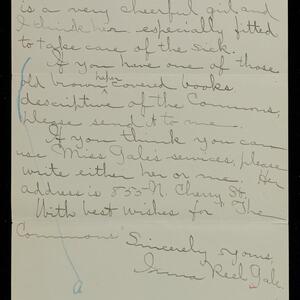 is a very cheerful girl and
I think her especially fitted
to take care of the sick.
If you have one of those
old brown paper covered books
descriptive of the Commons,
please send it to me.
If you think you can
use Miss Gale's services, please
write either her or me. Her
address is 555 N. Cherry St.
With best wishes for "The
Commons"
Sincerely yours,
Irma Reel Gale.